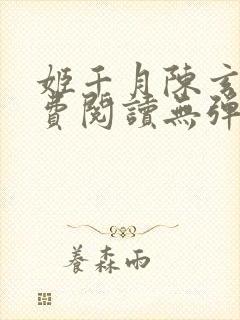 姬千月陳玄
費閱讀無彈
養森雨